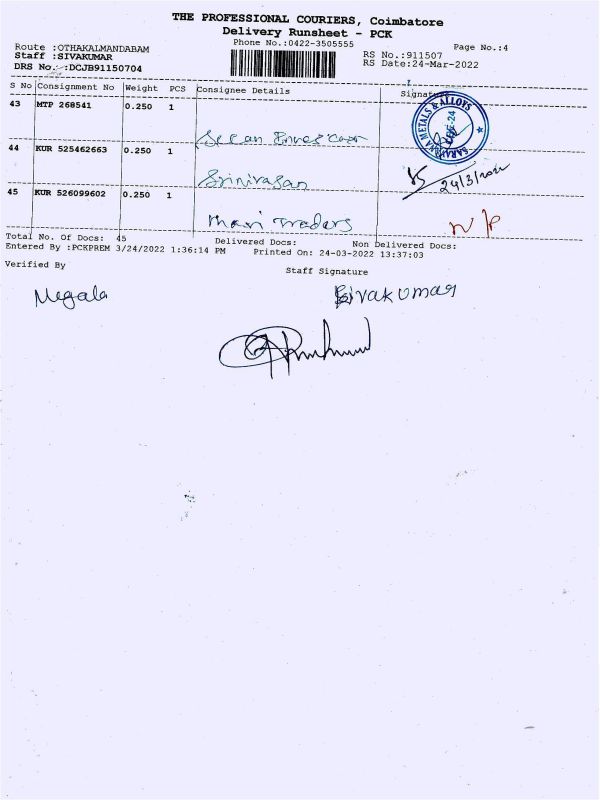 THE PROFESSIONAL COURIERS, Coimbatore
Delivery Runsheet - PCK
Phone No.:0422-3505555
Page No.:4
Route :OTHAKALMANDABAM
RS No.:911507
Staff :SIVAKUMAR
RS Date:24-Mar-2022
DRS No. :DCJB91150704
S No Consignment No Weight PCS Consignee Details Signature
43 MTP 268541 0.250 1
METALS & ALLOYS
44 KUR 525462663 0.250 1
Srinivasan
24/3/2022
45 KUR 526099602 0.250 1
Traders
Total No. Of Docs: 45 Delivered Docs: Non Delivered Docs:
Entered By :PCKPREM 3/24/2022 1:36:14 PM Printed On: 24-03-2022 13:37:03
Verified By Staff Signature
Megala Sivakumar